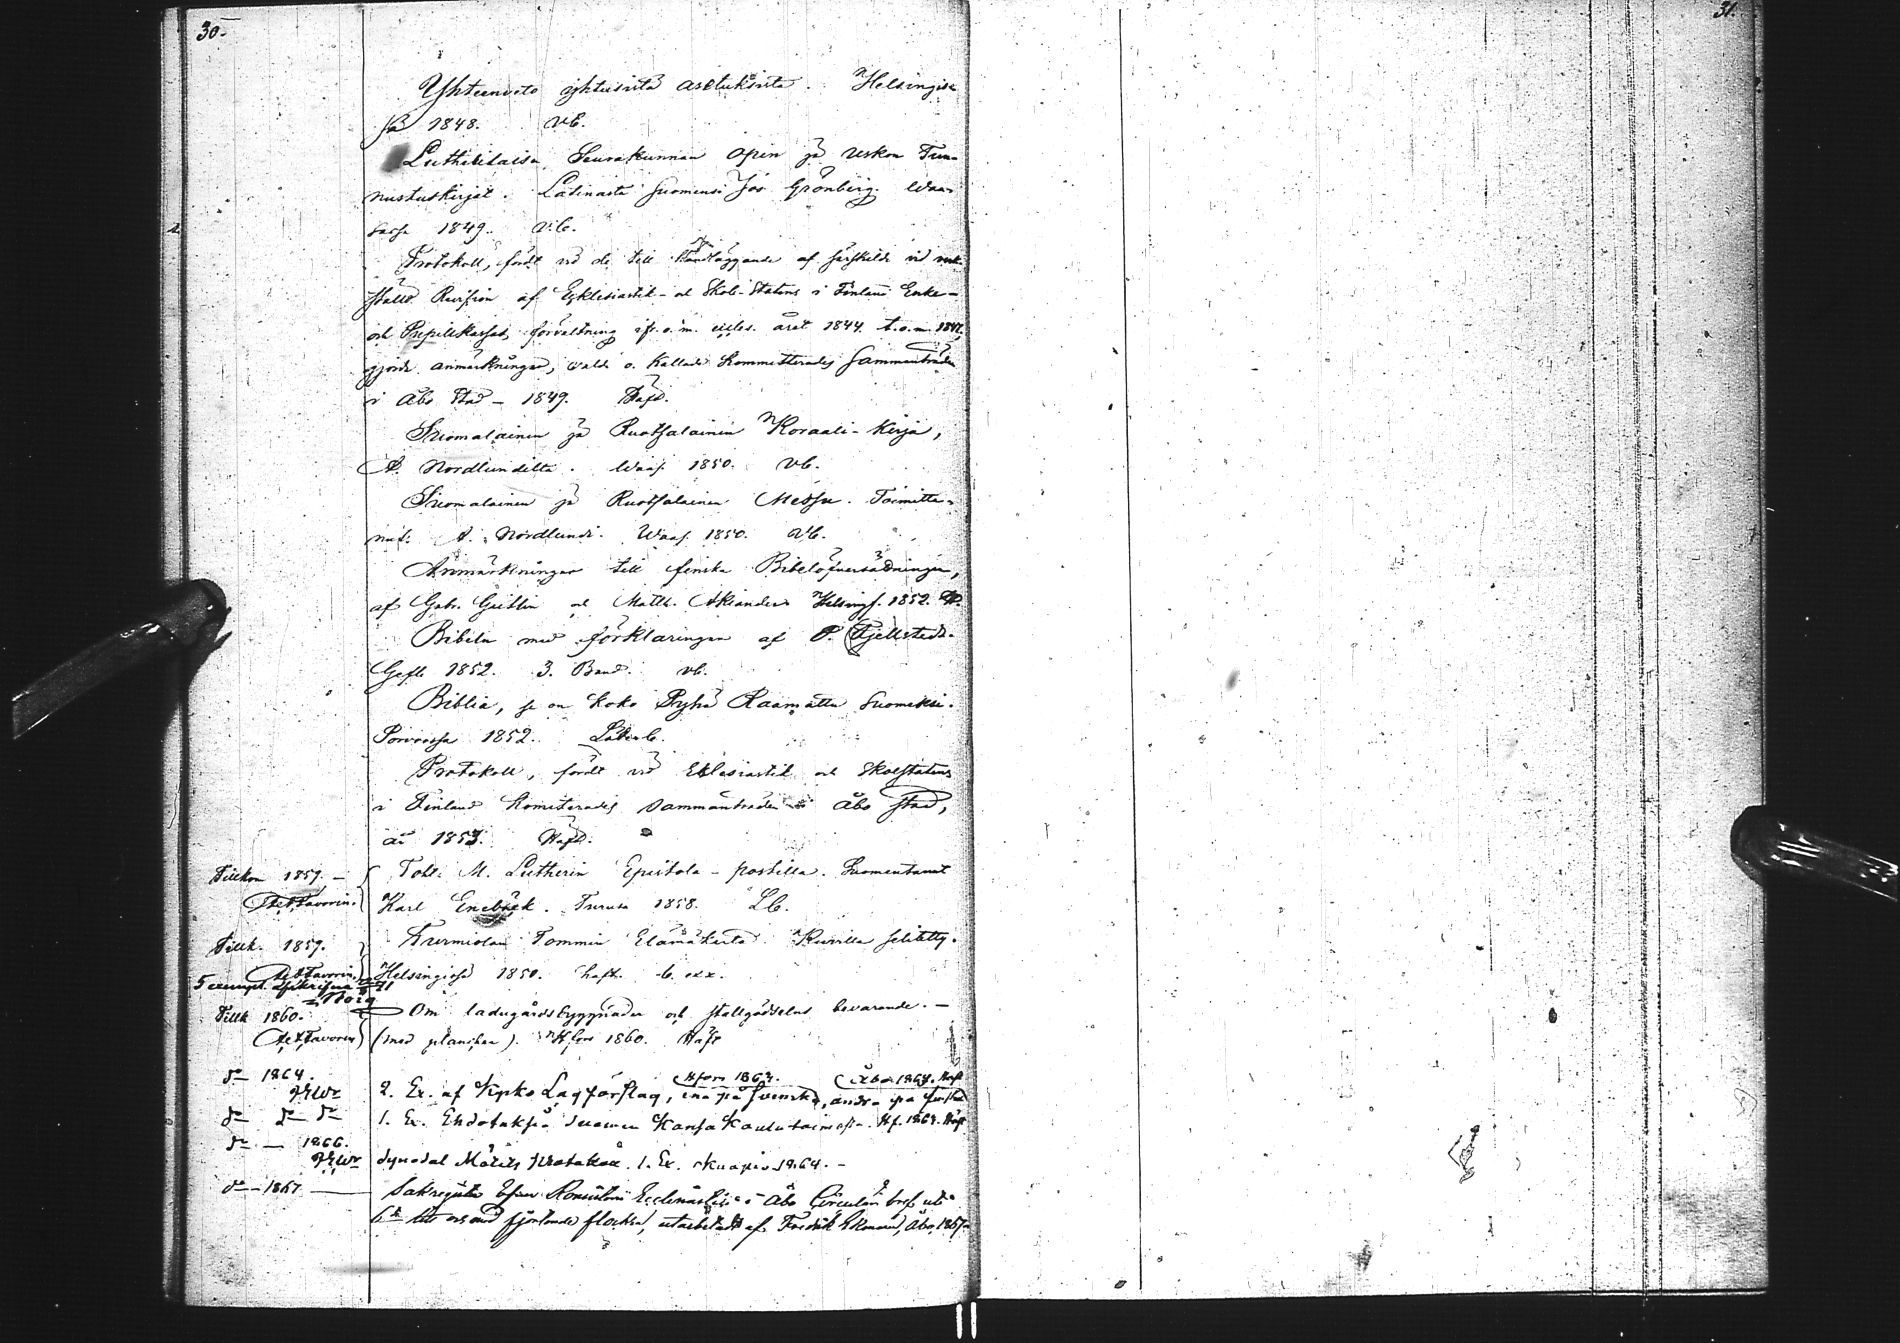 30.
31.
Yhteenveto yhtusista asetuksista. Helsingis-
sä 1848. vb.
Lutherilaisen Seurakunnan Opin ja Uskon Tun-
nustuskirjat. Latinasta Suomensi Jos Grönberg. Waa-
sassa 1849. v.b.
Protokoll, fördt vid de till Handläggande af särskilde vid verk-
ställd Revision af Ecklesiastik- och Skol-Statens i Finland Enke-
och Pupillkassas förvaltning ifr. o. m. eccles. året 1844 t.o.m. 1847,
gjorde anmärkningar, valde o. kallade Kommitterades Sammanträde
i Åbo Stad – 1849. Häft.
Suomalainen ja Ruotsalainen Koraali-Kirja,
A. Nordlundilta. Waas. 1850. vb.
Suomalainen ja Ruotsalainen Messu. Toimitta-
nut A. Nordlund. Waas. 1850. vb.
Anmärkningar till finska Bibelöfversättningen,
af Gabr. Geitlin och Matth. Akiander Helsingf. 1852.
Bibeln med förklaringar af P. Fjellstedt.
Gefle 1852. 3. Band. vb.
Biblia, se on Koko Pyhä Raamattu Suomeksi.
Porvoossa 1852. Läderb.
Protokoll, fördt vid Eklesiastik och Skolstatens
i Finland Komiterades Sammanträde i Åbo stad,
år 1853. Häft.
Tillkom 1859. – Toht. M. Lutherin Epistola-postilla. Suomentanut
Karl Enebäck. Turusa 1858. Lb.
Tillk. 1859. Turmiolan Tommin Elämäkerta. Kuvilla selitetty.
Helsingissä 1850. häft. 6. exx.
5 exempl.
Tillk 1860. Om ladugårdsbyggnader och stallgödselns bevarande. –
(med plancher). Hfors 1860. Häft
Hfors 1863. Åbo 1864. Häft
dº 1864. 2. Ex. af Kyrko Lagförslag, ena på Svenska, andra på finska
dº dº dº 1. Ex. Ehdotuksia Suomen Kansa Koulutoimesta. Hf. 1863. Häft
dº – 1866.
Synodal Mötets Protokoll. 1. Ex. Kuopio 1864. –
dº – 1867 Sakregister öfver Konsistorii Ecclesiastici i Åbo Circulär bref uti
6te till och med fjortonde flocken, utarbetadt af Fredrik Ekman, Åbo, 1867.